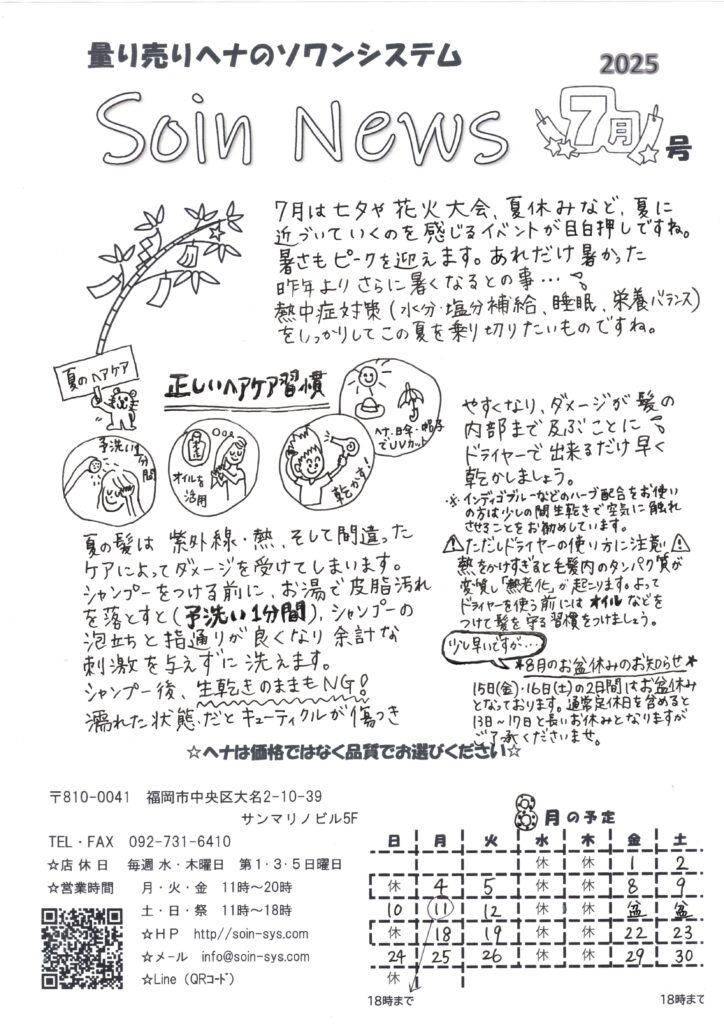 量り売りヘナのソワンシステム
2025
Soin News
7月
号
7月は七夕や花火大会、夏休みなど、夏に
近づいていくのを感じるイベントが目白押しですね。
暑さもピークを迎えます。あれだけ暑かった
昨年よりさらに暑くなるとの事…
熱中症対策(水分・塩分補給、睡眠、栄養バランス)
をしっかりしてこの夏を乗り切りたいものですね。
夏のヘアケア
正しいヘアケア習慣
予洗い1分間
オイルを
活用
乾かす!
ヘナ・日傘・帽子
でUVカット
夏の髪は 紫外線・熱、そして間違った
ケアによってダメージを受けてしまいます。
シャンプーをつける前に、お湯で皮脂汚れ
を落とすと(予洗い1分間)、シャンプーの
泡立ちと指通りが良くなり余計な
刺激を与えずに洗えます。
シャンプー後、生乾きのままもNG!
濡れた状態だとキューティクルが傷つき
やすくなり、ダメージが髪の
内部まで及ぶことに
ドライヤーで出来るだけ早く
乾かしましょう。
※インディゴブルーなどのハーブ配合をお使い
の方は少しの間生乾きで空気に触れ
させることをお勧めしています。
⚠ただしドライヤーの使い方に注意⚠
熱をかけすぎると毛髪内のタンパク質が
変質し「熱老化」が起こります。よって
ドライヤーを使う前には オイル などを
つけて髪を守る習慣をつけましょう。
少し早いですが…
*8月のお盆休みのお知らせ*
15日(金)・16日(土)の2日間はお盆休み
となっております。通常定休日を含めると
13日〜17日と長いお休みとなりますが
ご了承くださいませ。
☆ヘナは価格ではなく品質でお選びください☆
〒810-0041 福岡市中央区大名2-10-39
サンマリノビル5F
TEL・FAX 092-731-6410
☆店休日 毎週水・木曜日 第1・3・5日曜日
☆営業時間 月・火・金 11時〜20時
土・日・祭 11時〜18時
☆HP http://soin-sys.com
☆メール info@soin-sys.com
☆Line (QRコード)
8月の予定
日 月 火 水 木 金 土
休 休 1 2
休 4 5 休 休 8 9
10 11 12 休 休 盆 盆
休 18 19 休 休 22 23
24 25 26 休 休 29 30
休
18時まで
18時まで